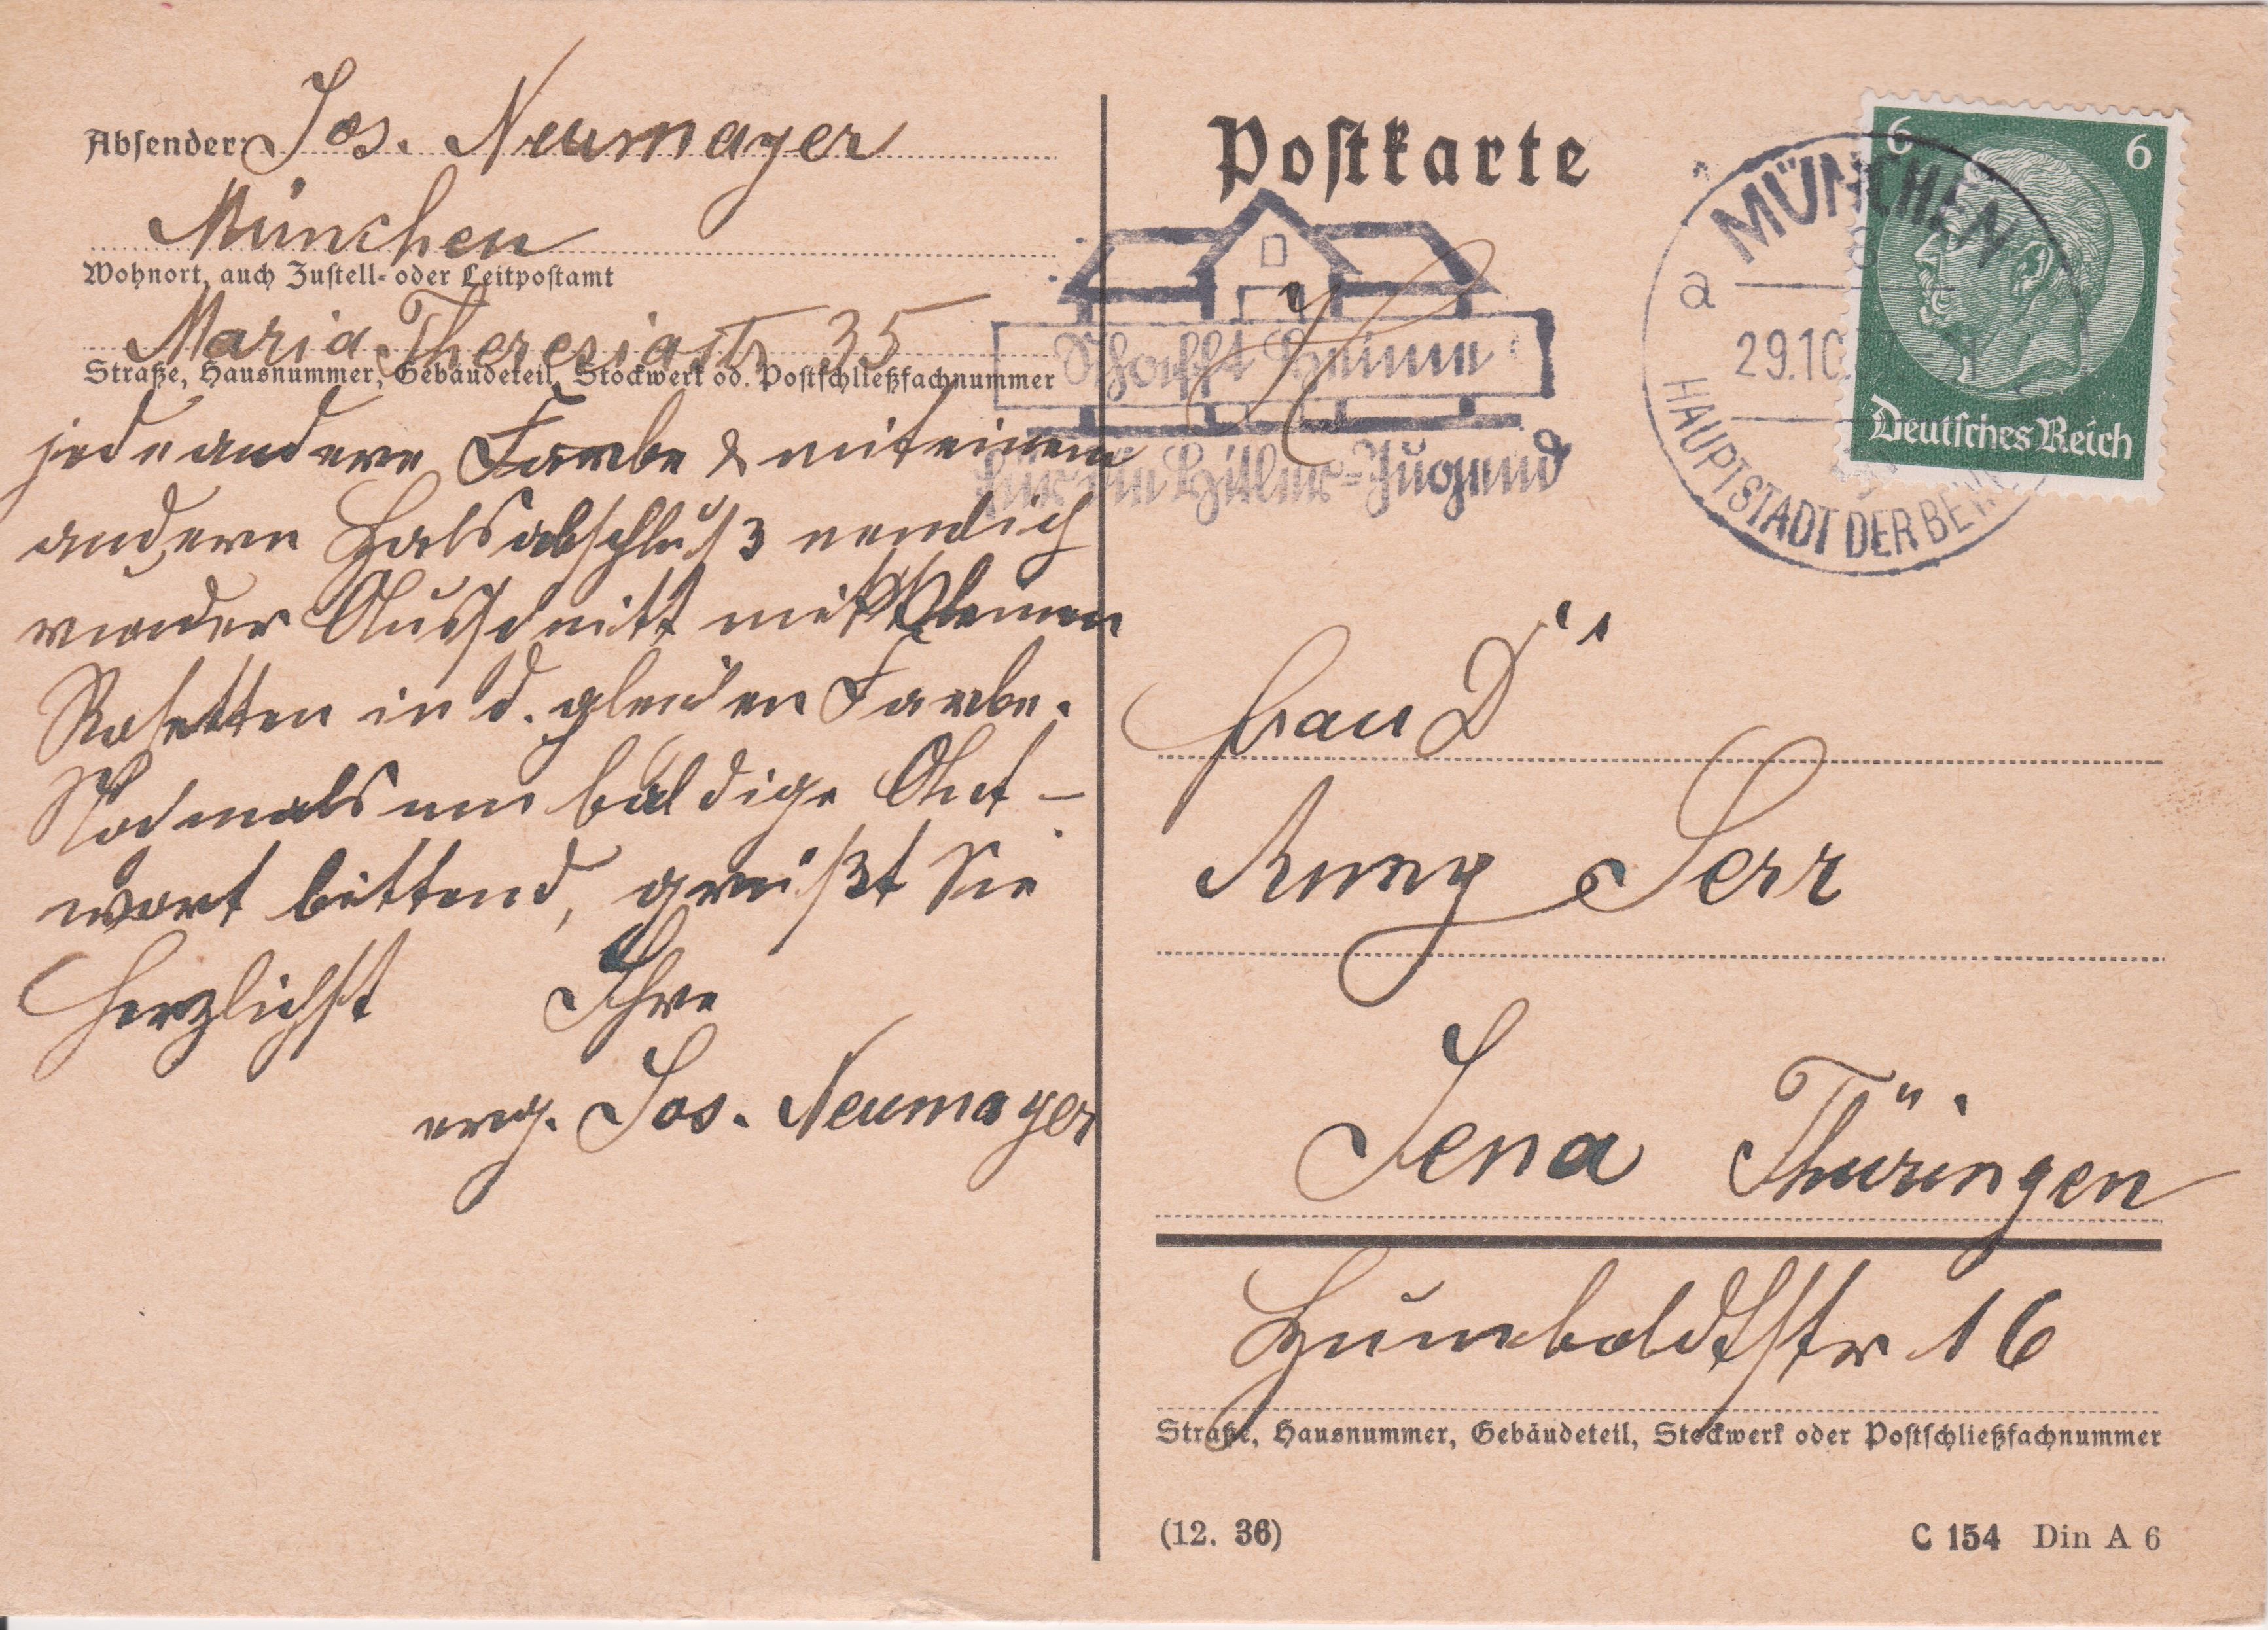 Absender: Jos. Neumayer
München
Wohnort, auch Zustell- oder Leitpostamt
Maria Theresiastr 35
Straße, Hausnummer, Gebäudeteil, Stockwerk od. Postschließfachnummer
jede andere Farbe & mit einem
andern Halsabschluß nemlich
runder Ausschnitt mit kleinen
Rosetten in d. gleichen Farbe.
Nochmals um baldige Ant-
wort bittend, grüßt Sie
herzlichst Ihre
erg. Jos. Neumayer
Postkarte
Schafft Heime
für die Hitler-Jugend
MÜNCHEN
a
29.10
HAUPTSTADT DER BEW
6 6
Deutsches Reich
Frau Dr
Anny Serr
Jena Thüringen
Humboldtstr 16
Straße, Hausnummer, Gebäudeteil, Stockwerk oder Postschließfachnummer
(12. 36)
C 154 Din A 6